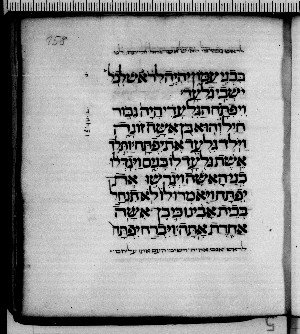 158
בבני עמון יהיה לראש לכל
ישבי גלעד
ויפתח הגלעדי היה גבור
חיל והוא בן אשה זונה
ויולד גלעד את יפתח ותלד
אשת גלעד לו בנים ויגדלו
בני האשה ויגרשו את
יפתח ויאמרו לו לא תנחל
בבית אבינו כי בן אשה
אחרת אתה ויברח יפתח